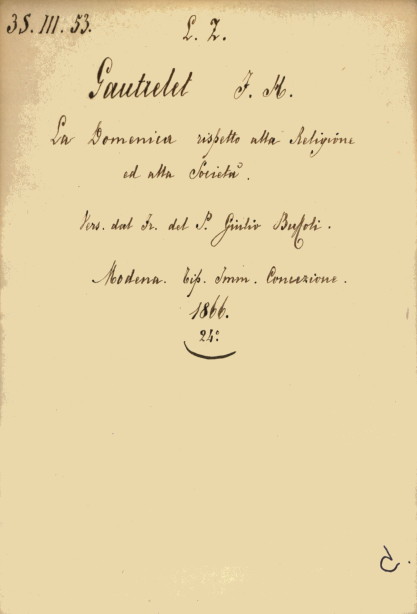 35. III. 53.
L. Z.
Gautrelet F. X.
La Domenica rispetto alla Religione
ed alla Società.
Vers. dal Fr. del P. Giulio
Modena. Tip. Imm. Concezione.
1866.
24°